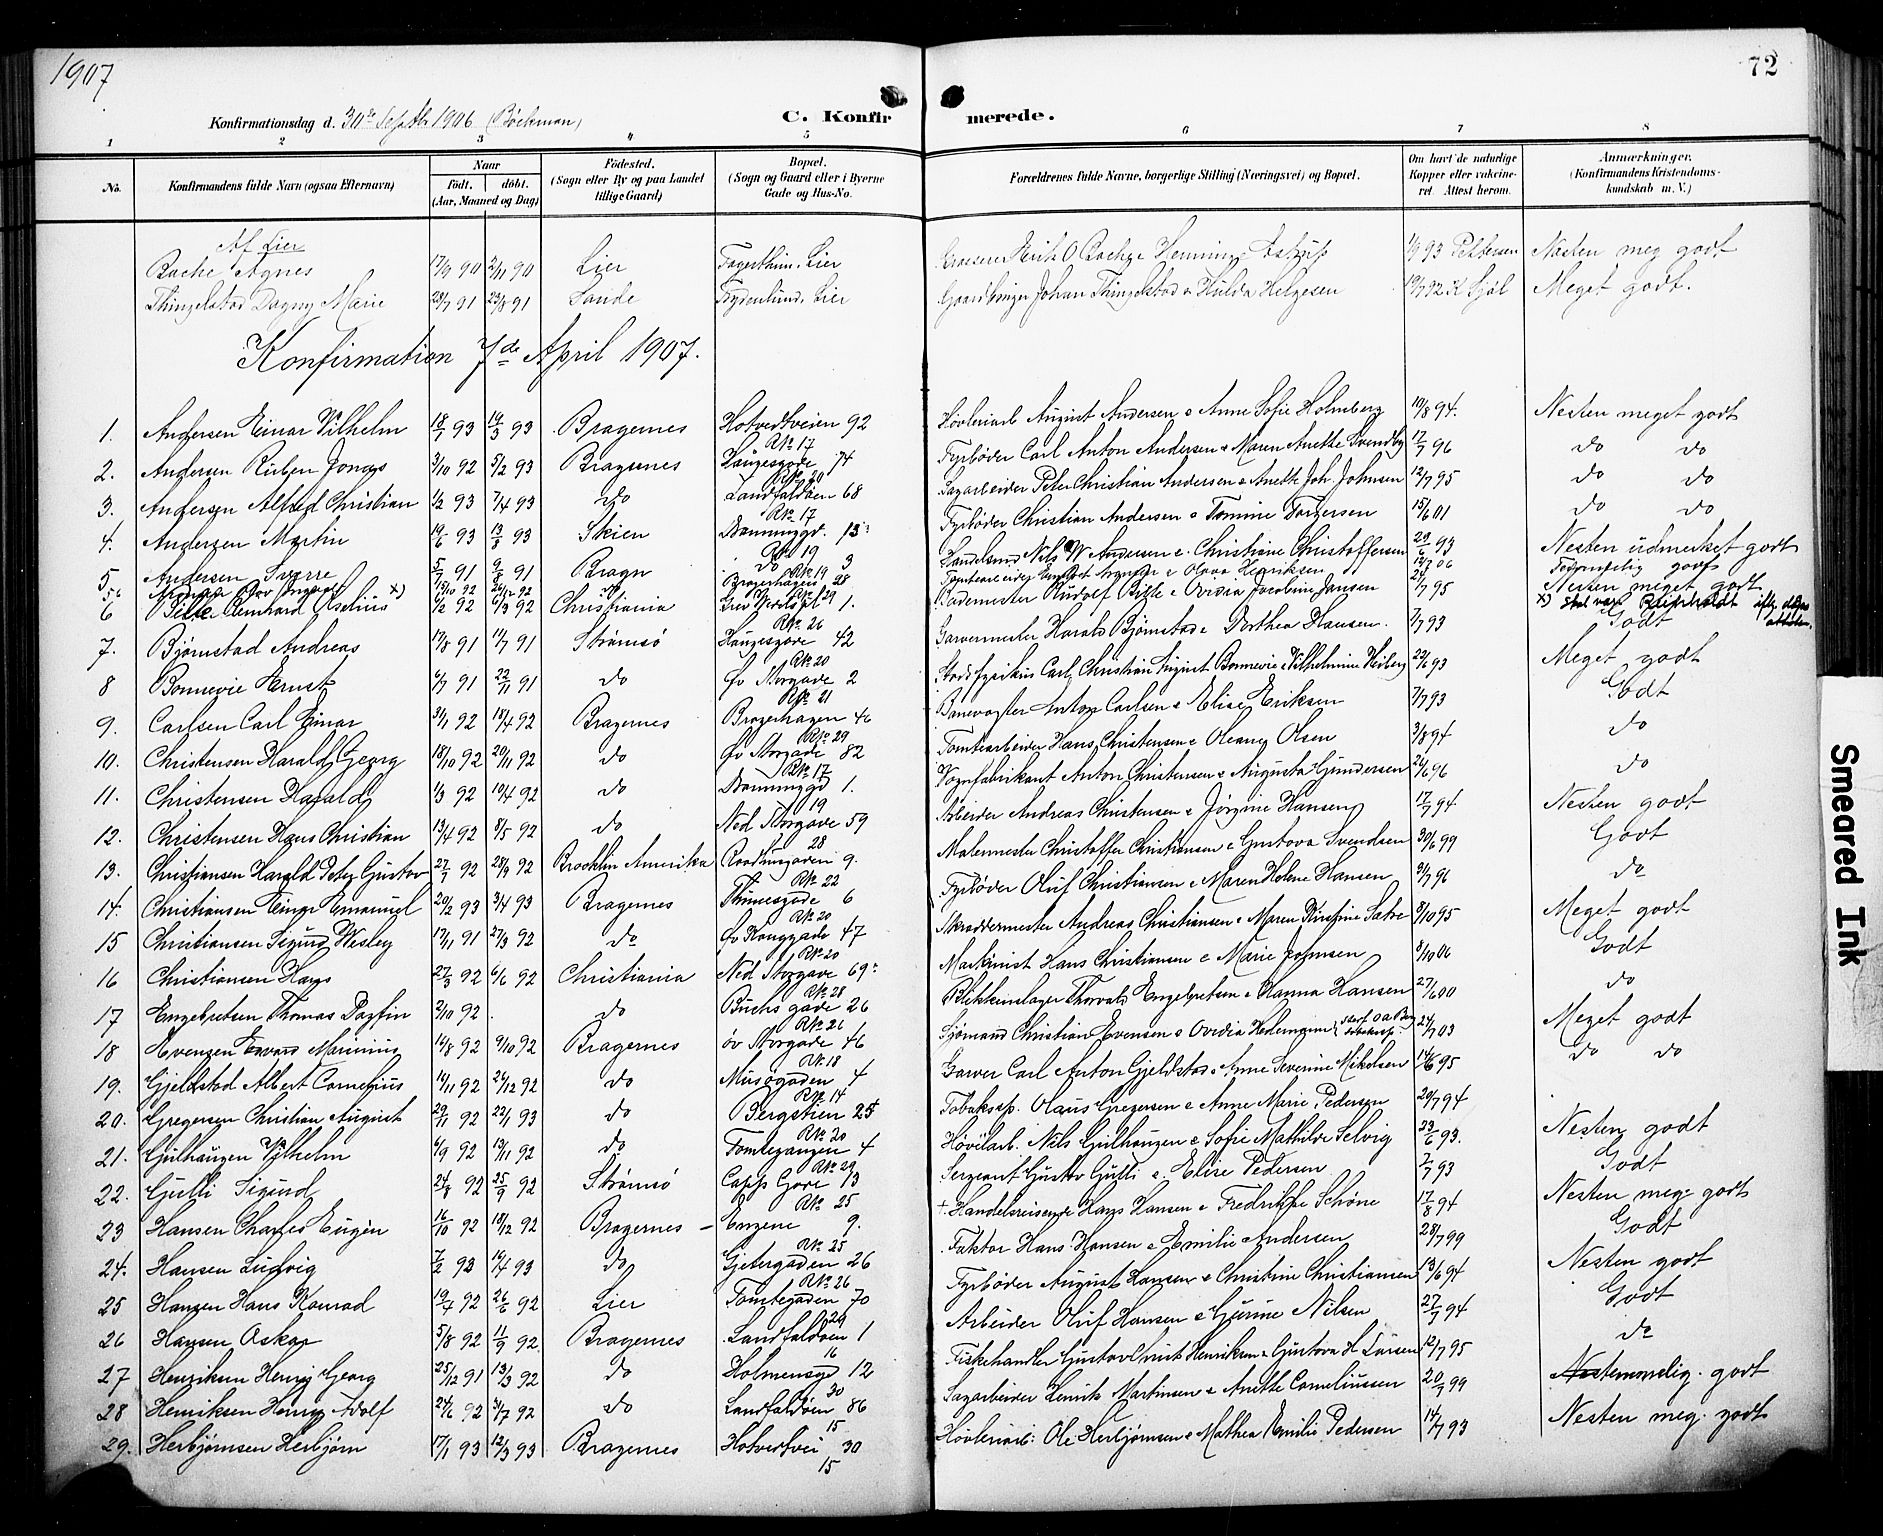 1907
72
Konfirmationsdag d. 30te Septbr 1906 (Böckman)
C. Konfirmerede.
1 2 3 4 5 6 7 8
No. Konfirmandens fulde Navn (ogsaa Efternavn) Naar født. døbt. (Aar, Maaned og Dag) Fødested. (Sogn eller By og paa Landet tillige Gaard) Bopæl. (Sogn og Gaard eller i Byerne Gade og Hus-No. Forældrenes fulde Navne, borgerlige Stilling (Næringsvei) og Bopæl. Om havt de naturlige Kopper eller vakcineret. Attest herom. Anmærkninger. (Konfirmandens Kristendomskundskab m. V.)
Af Lier
Bache Agnes 17/9 90 2/11 90 Lier Lier 93 Nesten meg godt
Thingelstad Dagny Marie 28/7 91 23/8 91 Sande Frydenlund, Lier Johan Thingelstad o Hulda Helgesen Meget godt.
Konfirmation 7de April 1907.
1. Andersen Einar Vilhelm 18/1 93 93 Bragernes Hotvedtveien 92 Høvleriarb August Andersen o Anne Sofie Holmberg 10/8 94. Nesten meget godt
Rk 17
2. Andersen Ruben Jonas 3/10 92 5/2 93 Bragernes Haugesgade 74 Fyrbøder Carl Anton Andersen o Maren Anette Svendby 96 do do
3. Andersen Alfred Christian 1/2 93 7/4 93 do Landfaldøen 68 Sagarbeider Peter Christian Andersen o Anette Joh. Johnsen 12/7 95 do do
Rk 17
4. Andersen Martin 93 13/8 93 Skien 13 Fyrbøder Christian Andersen o Tomine Torgersen 15/6 01 do do
Rk 19
5 Andersen Sverre 5/7 91 9/8 91 Bragn do 3 Nils W Andersen o Christiane Christoffersen 29/6 93 Nesten udmerket godt
6 Bille Bernhard 92 92 Christiania 1. Rudolf Bille o Ovidia Jacobine Jansen 95 Nesten meget godt
Godt
Rk 26
7. Bjørnstad Andreas 17/8 91 91 Strømsø Haugesgade 42 Garvermester Harald Bjørnstad o Dorthea Hansen. 7/7 93
Rk 20
8 Bonnevie Ernst 6/7 91 22/11 91 do Øv Storgade 2 Stadsfysikus Carl Christian August Bonnevie o Vilhelmine Heiberg 93 Meget godt
Rk 21
9. Carlsen Carl Einar 3/1 92 18/4 92 Bragernes Bragerhagen 46 Banevogter Anton Carlsen o Elise Eriksen 7/7 93 Godt
Rk 29
10. Christensen Harald Georg 18/10 92 20/11 92 do Øv Storgade 82 Tomtearbeider Hans Christensen o Oleany Olsen 3/8 94 do
Rk 17
11. Christensen Harald 1/3 92 10/4 92 do 1. Vognfabrikant Anton Christensen o Augusta Gundersen 96 do
19
12. Christensen Hans Christian 13/4 92 8/5 92 do Ned Storgade 59 Arbeider Andreas Christensen o Jørgine Hansen 17/7 94 Nesten godt
28
13. Christiansen Harald Peter Gustav 27/7 92 28/9 92 Brooklin Amerika Raadhusgaden 9. Malermester Christoffer Christiansen o Gustava Svendsen 30/6 99 Godt
Rk 22
14. Christiansen Einar Emanuel 20/2 93 3/4 93 Bragernes Thinesgade 6 Fyrbøder Oluf Christiansen o Maren Helene Hansen 96 do
Rk 20
15 Christiansen Sigurd Wesley 17/11 91 27/3 92 do Øv Konggade 47 Skræddermester Andreas Christiansen o Maren Kirstine Sætre 8/10 95 Meget godt
Rk 20
16 Christiansen Hans 27/3 92 6/6 92 Christiania Ned Storgade 69 Maskinist Hans Christiansen o Marie Johnsen 8/10 06 Godt
Rk 28
17 Engebretsen Thomas Dagfin 2/10 92 do Buchs gade 26 Blikkenslager Thorvald Engebretsen o Hanna Hansen 27/6 00 do
Rk 26
18 Evensen Edvard Marinius 14/8 92 9/10 92 Bragernes Øv Storgade 46 Sjømand Christian Evensen o Ovidia 24/7 03 Meget godt
Rk 18
19. Gjeldstad Albert Cornelius 14/11 92 26/12 92 do Musøgaden 4 Garver Carl Anton Gjeldstad o Anne Severine Mikelsen 14/6 95 do do
Rk 14
20. Gregersen Christian August 29/11 92 22/1 93 do Bergstien 25 Tobakssp. Olaus Gregersen o Anne Marie Pedersen 20/7 94
Rk 20
21. Gulhaugen Vilhelm 6/9 92 13/11 92 do Tomtegangen 4 Høvilarb. Nils Gulhaugen o Sofie Mathilde Selvig 23/6 93. Nesten godt
Rk 29
22. Gulli Sigurd 24/8 92 25/9 92 Strømsø Capps Gade 13 Sergeant Gustav Gulli o Elise Pedersen 7/7 93 Godt
Rk 25
23 Hansen Charles Eugen 16/10 92 18/12 92 Bragernes - Engene 9. + Handelsreisende Hans Hansen o Fredrikke Schøne 17/8 94 Nesten meg. godt
Rk 25
24. Hansen Ludvig 7/2 93 93 do Gjetergaden 26 Faktor Hans Hansen o Emilie Andersen 28/7 99 Godt
Rk 26
25 Hansen Hans Konrad 92 26/6 92 Lier Tomtegaden 70 Fyrbøder August Hansen o Christine Christiansen 13/6 94 Nesten godt
29
26 Hansen Oskar 5/8 92 11/9 92 Bragernes Landfaldøen 1 Arbeider Oluf Hansen o Gurine Nilsen 27/7 94 Godt
16
27 Henriksen Henry Georg 25/12 91 13/3 92 do Holmensgd 12 Fiskehandler Henriksen o Gustava H Larsen 12/7 95 do
30
28 Henriksen Henry Adolf 24/6 92 31/7 92 do Landfaldøen 86 Sagarbeider Henrik Martinsen o Anette Corneliussen 20/7 99 godt
15
29. Herbjørnsen Herbjørn 17/1 93 12/3 93 Bragernes Hotvedtvei 30 Høvleriarb: Ole Herbjørnsen o Mathea Emilie Pedersen 14/7 93 Nesten meg. godt
15
Smeared Ink